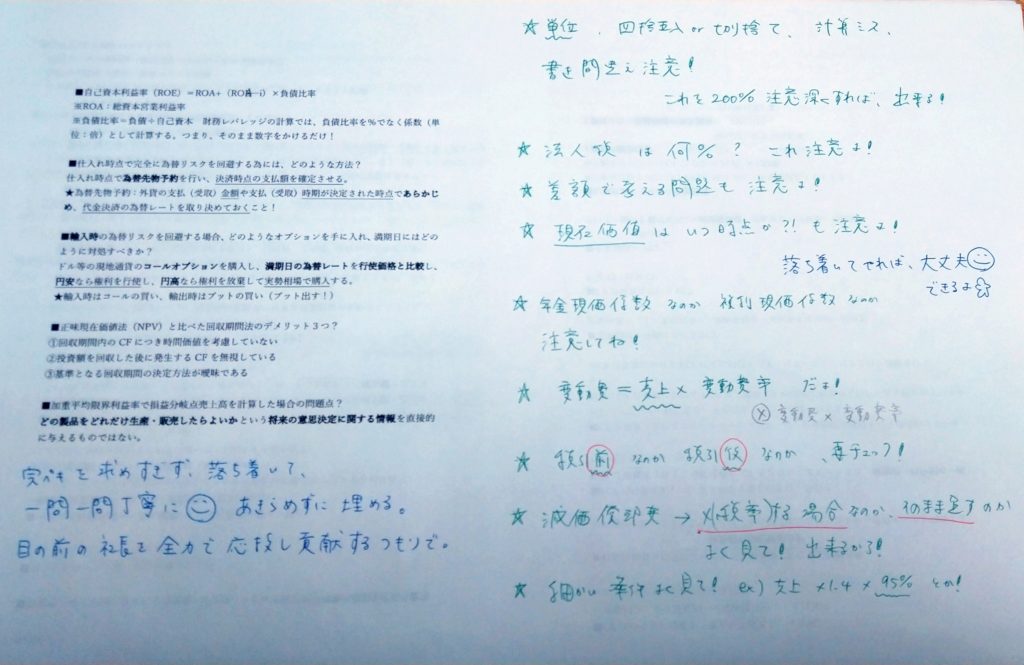 ■自己資本利益率（ROE）＝ROA+（ROA－i）×負債比率
※ROA：総資本営業利益率
※負債比率＝負債÷自己資本　財務レバレッジの計算では、負債比率を％でなく係数（単
位：倍）として計算する。つまり、そのまま数字をかけるだけ！
■仕入れ時点で完全に為替リスクを回避する為には、どのような方法？
仕入れ時点で為替先物予約を行い、決済時点の支払額を確定させる。
★為替先物予約：外貨の支払（受取）金額や支払（受取）時期が決定された時点であらかじ
め、代金決済の為替レートを取り決めておくこと！
■輸入時の為替リスクを回避する場合、どのようなオプションを手に入れ、満期日にはどの
ように対処すべきか？
ドル等の現地通貨のコールオプションを購入し、満期日の為替レートを行使価格と比較し、
円安なら権利を行使し、円高なら権利を放棄して実勢相場で購入する。
★輸入時はコールの買い、輸出時はプットの買い（プット出す！）
■正味現在価値法（NPV）と比べた回収期間法のデメリット３つ？
①回収期間内の CF につき時間価値を考慮していない
②投資額を回収した後に発生する CF を無視している
③基準となる回収期間の決定方法が曖昧である
■加重平均限界利益率で損益分岐点売上高を計算した場合の問題点？
どの製品をどれだけ生産・販売したらよいかという将来の意思決定に関する情報を直接的
に与えるものではない。
完ペキを求めすぎず、落ち着いて、
一問一問丁寧に あきらめずに 埋める。
目の前の社長を全力で応援し貢献するつもりで。
☆ 単位、四捨五入 or 切り捨て、計算ミス、
書き間違え注意！
これを200%注意深くすれば、出来る！
☆ 法人税 は 何%？ これ注意よ！
☆ 差額で考える問題も 注意よ！
☆ 現在価値 は いつ時点か?! も注意よ！
落ち着いてやれば、大丈夫
できるよ☆
☆ 年金現価係数 なのか 複利現価係数 なのか
注意してね！
☆ 変動費＝売上×変動費率 だよ！
Ⓧ 変動費×変動費率
☆ 税引前 なのか 税引後 なのか、要チェック！
☆ 減価償却費 → ×(税率)する場合なのか、そのまま足すのか
よく見て！ 出来るから！
☆ 細かい 条件 よく見て！ ex) 売上 ×1.4 × 95% とか！